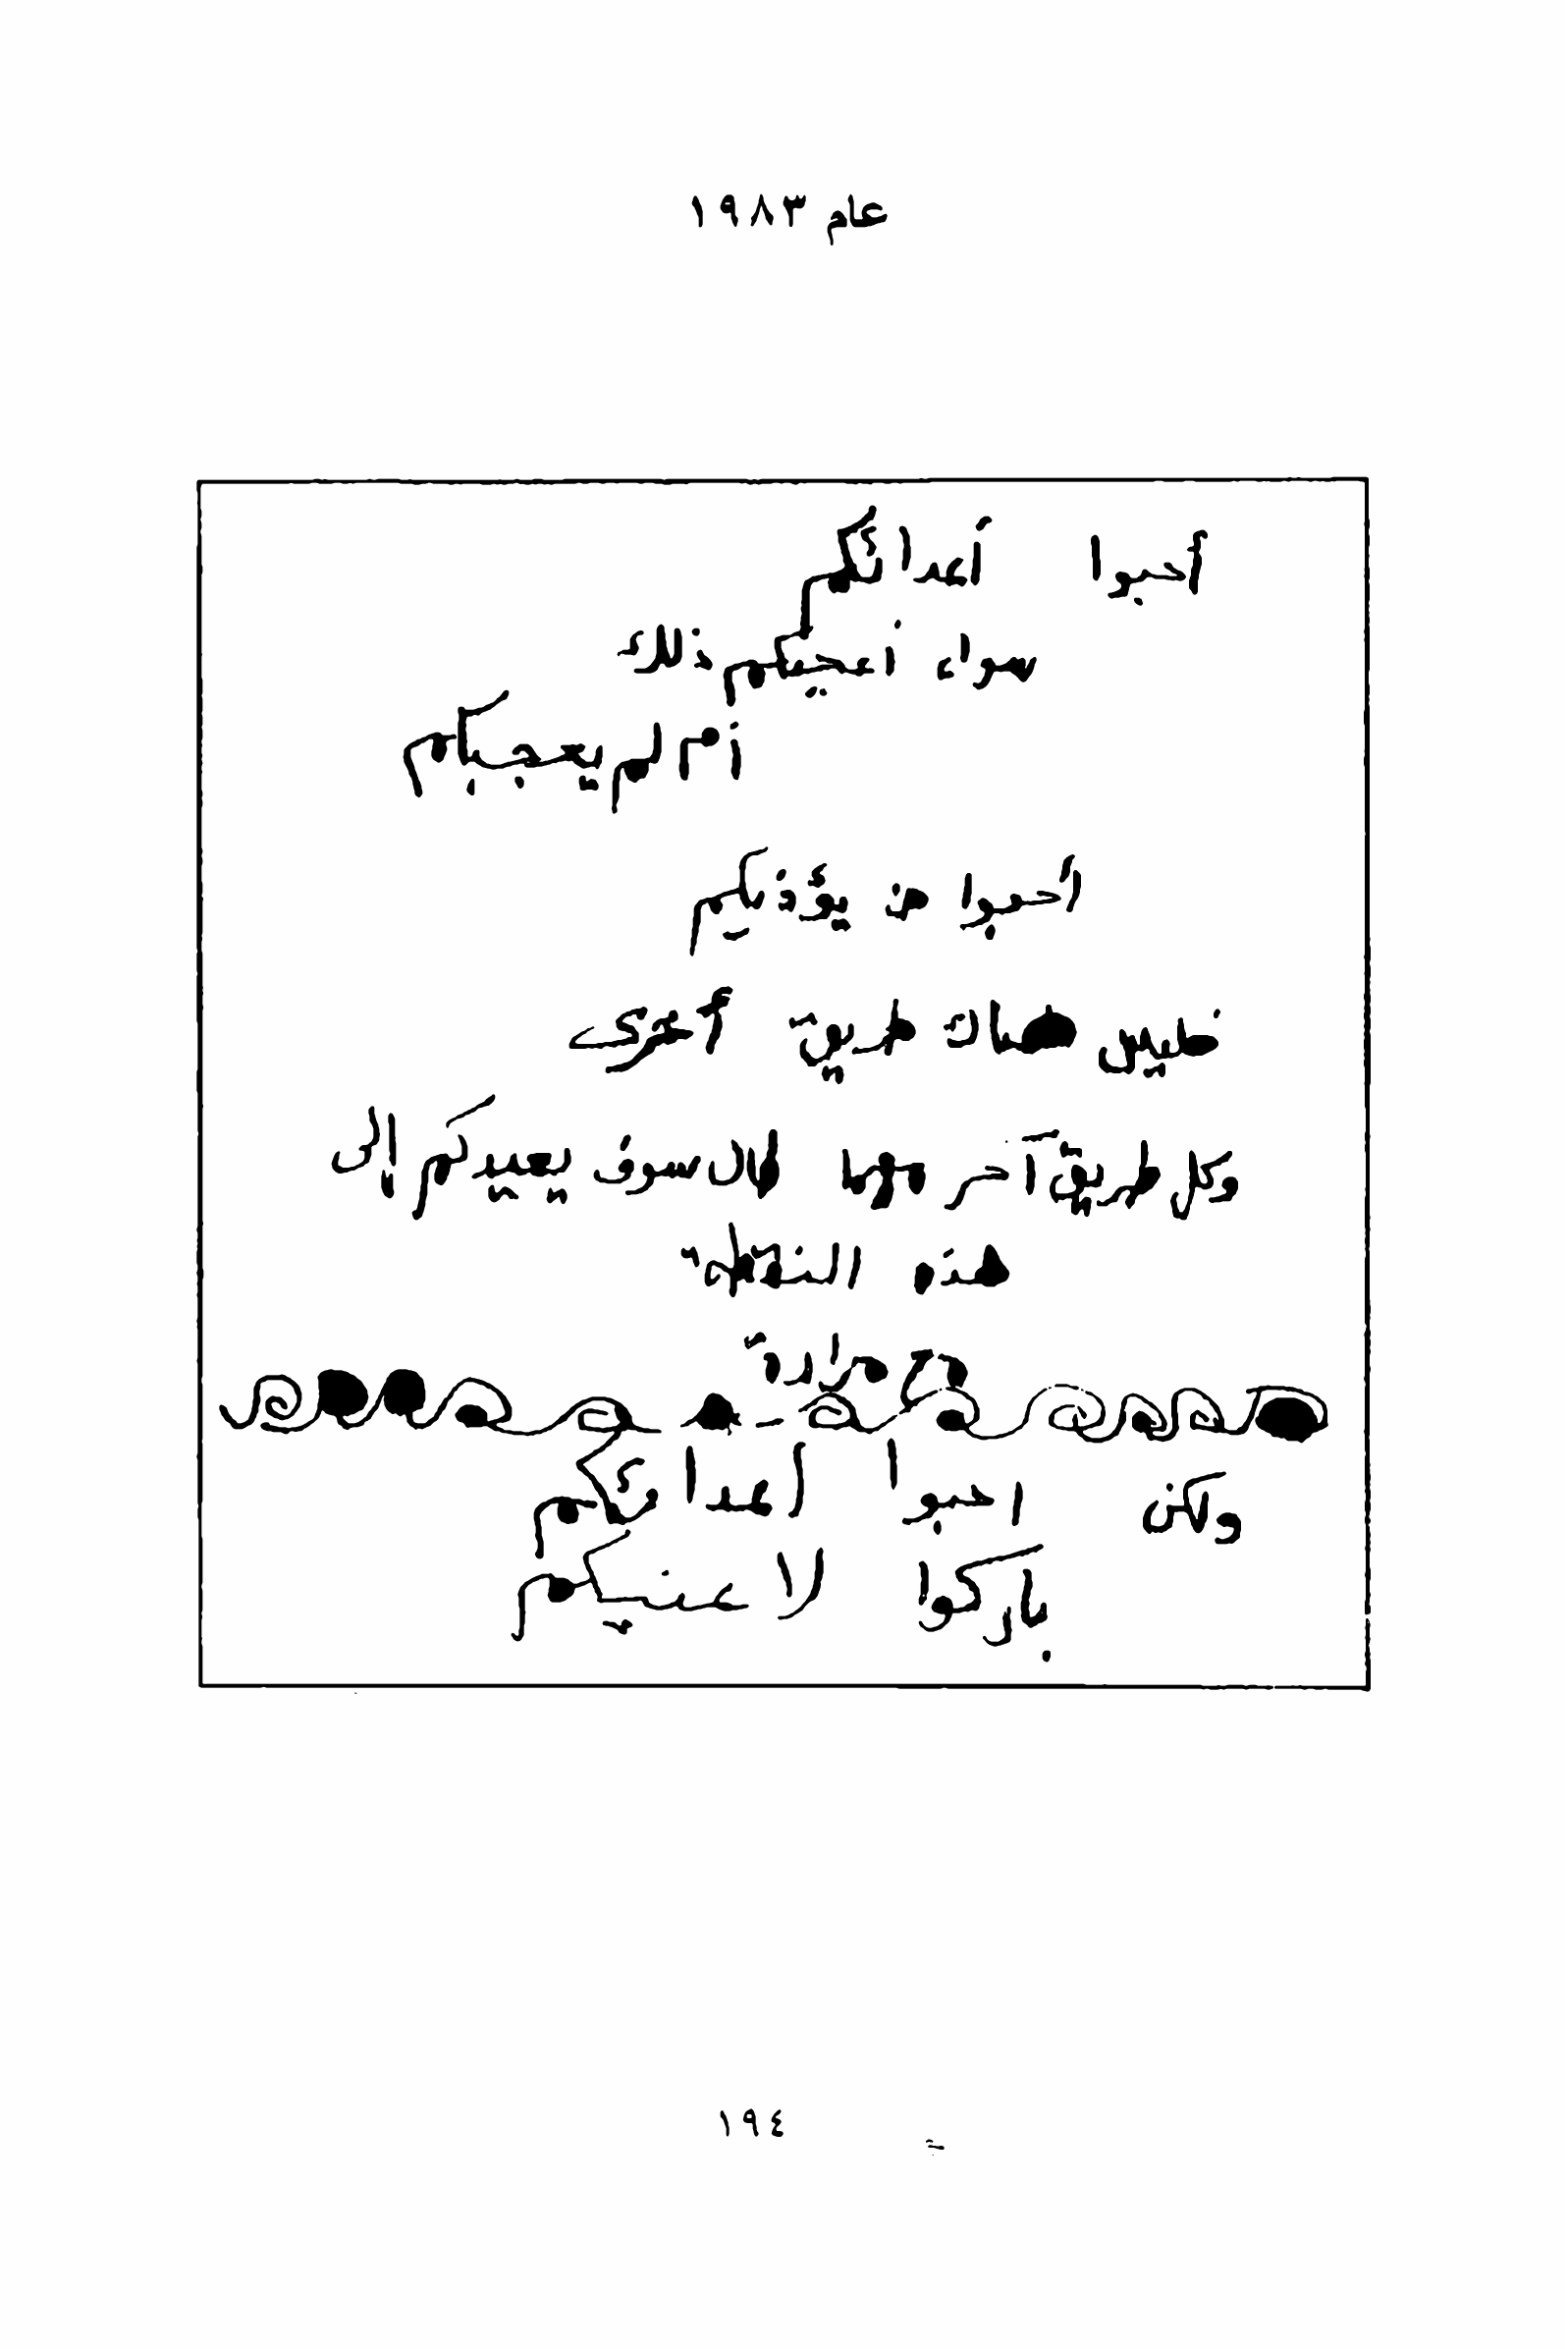 عام ١٩٨٣
أحبوا أعدائكم
سواء أعجبكم ذلك
أم لم يعجبكم
أحبوا من يؤذيكم
فليس هناك طريق أخرى
وكل طريق آخر مهما طال سوف يعيدكم إلى
هذه النقطة
مع مرارة
ولكن احبوا أعدائكم
باركوا لاعنيكم
١٩٤